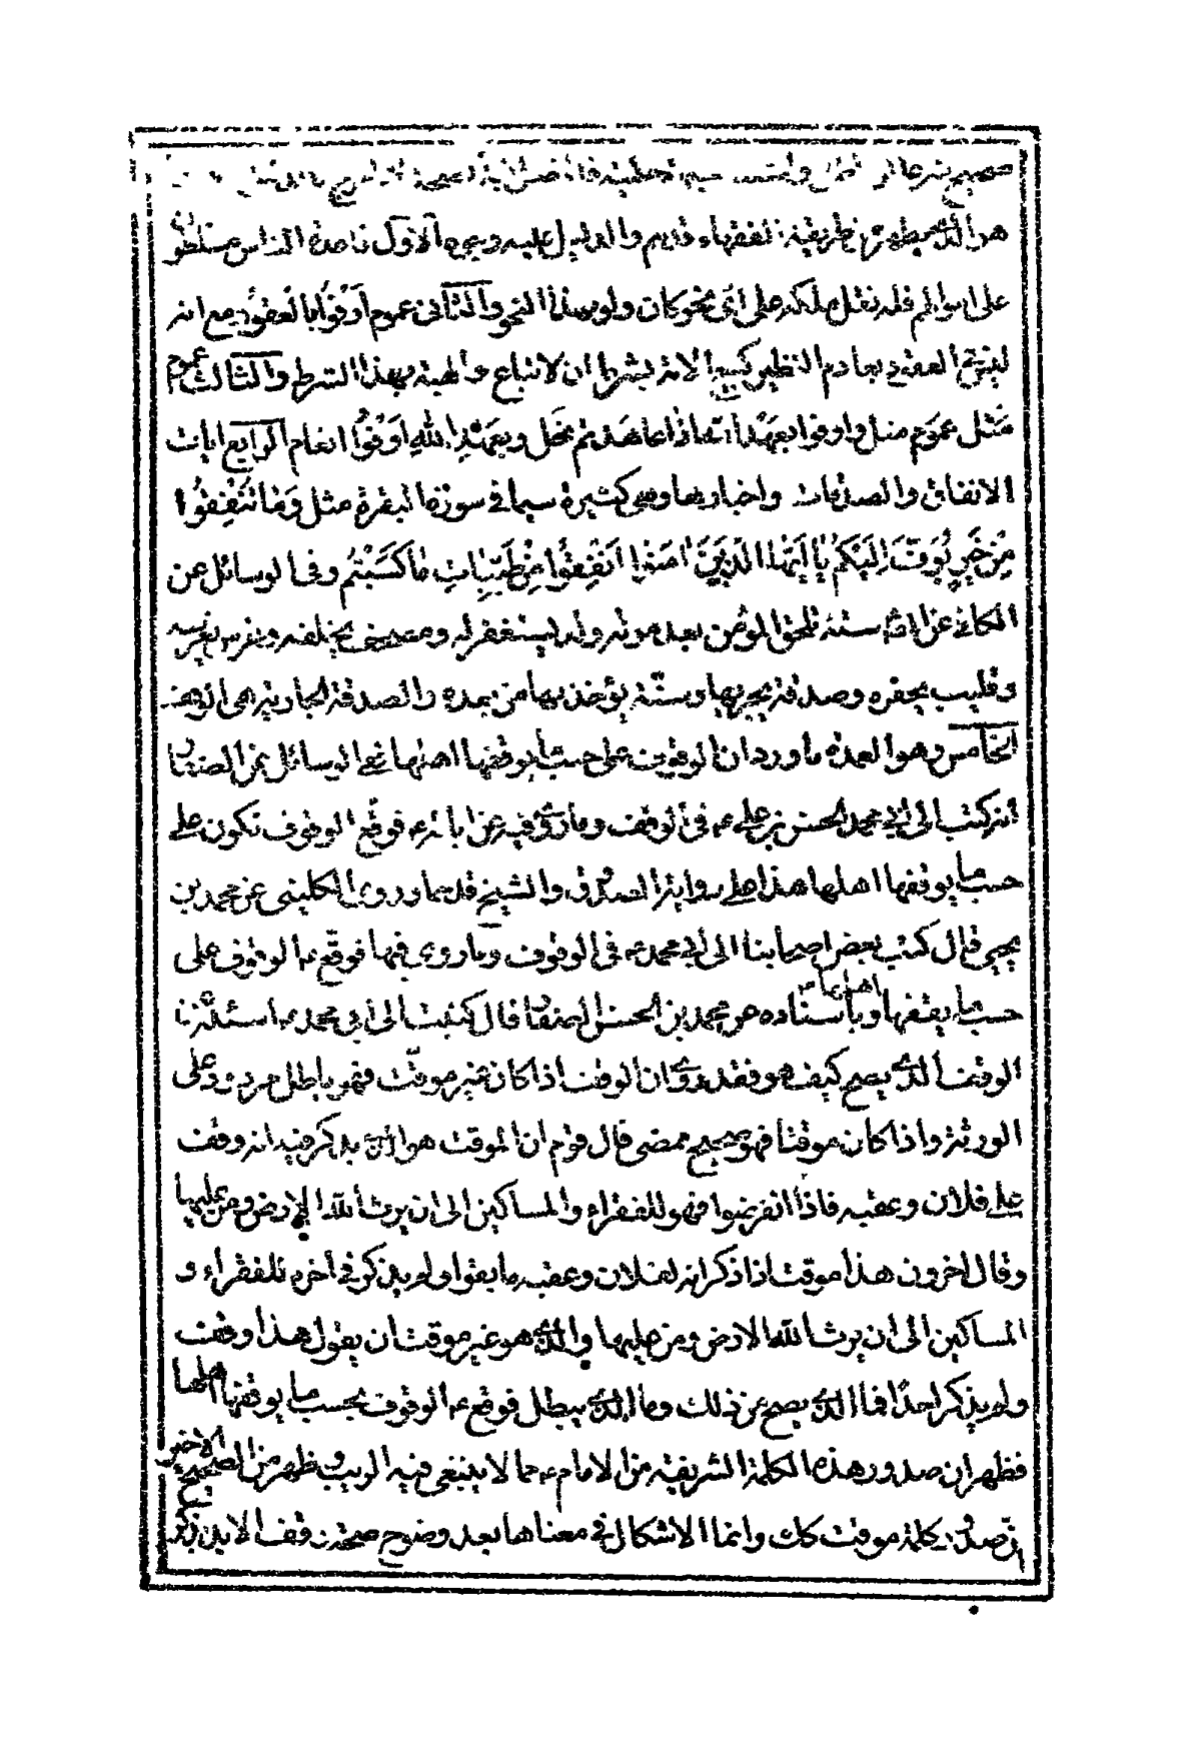 هو الذي يظهر من طريقة الفقهاء قديم والدليل عليه وجوه الأول قاعدة الناس مسلطون
على اموالهم فله نقل ملكه على اي نحو كان ولو بهذا النحو والثاني عموم اوفوا بالعقود مع انه
العقد بعادم النظير كبيع الامة بشرط ان لا تباع والهبة بهذا الشرط والثالث عموم
مثل عموم مثل واوفوا بعهد الله اذا عاهدتم وبعهد الله اوفوا انعام الرابع ايات
الانفاق والصدقات واخبارها وهي كثيرة سيما في سورة البقرة مثل وما تنفقوا
من خير يوف اليكم يا ايها الذين امنوا انفقوا من طيبات ما كسبتم وفي الوسائل عن
الكافي عن الصادق ستة تلحق المؤمن بعد موته ولد يستغفر له ومصحف يخلفه وغرس يغرسه
وقليب يحفره وصدقة يجريها وسنة يؤخذ بها من بعده والصدقة الجارية هي الوقف
الخامس وهو العمدة ما ورد ان الوقوف على حسب ما يوقفها اهلها ففي الوسائل عن الصفار
انه كتب الى ابي محمد الحسن بن علي ع في الوقف وما روي فيه عن ابائه ع فوقع الوقوف تكون على
حسب ما يوقفها اهلها هذا على رواية الصدوق والشيخ قدهما وروى الكليني عن محمد بن
يحيى قال كتب بعض اصحابنا الى ابي محمد ع في الوقوف وما روي فيها فوقع ع الوقوف على
حسب ما يقفها اهلها وباسناده عن محمد بن الحسن الصفار قال كتبت الى ابي محمد ع اسئله عن
الوقف الذي يصح كيف هو فقد روي ان الوقف اذا كان غير موقت فهو باطل مردود على
الورثة واذا كان موقتا فهو صحيح ممضى قال قوم ان الموقت هو الذي يذكر فيه انه وقف
على فلان وعقبه فاذا انقرضوا فهو للفقراء والمساكين الى ان يرث الله الارض ومن عليها
وقال اخرون هذا موقت اذا ذكر انه لفلان وعقبه ما بقوا ولم يذكر في اخره للفقراء و
المساكين الى ان يرث الله الارض ومن عليها والذي هو غير موقت ان يقول هذا وقف
ولم يذكر احدا فما الذي يصح من ذلك وما الذي يبطل فوقع ع الوقوف بحسب ما يوقفها اهلها
فظهر ان صدور هذه الكلمة الشريفة من الامام ع مما لا ينبغي فيه الريب وظهر من الصحيح الاخير
كلمة موقت كك وانما الاشكال في معناها بعد وضوح صحة وقف الا